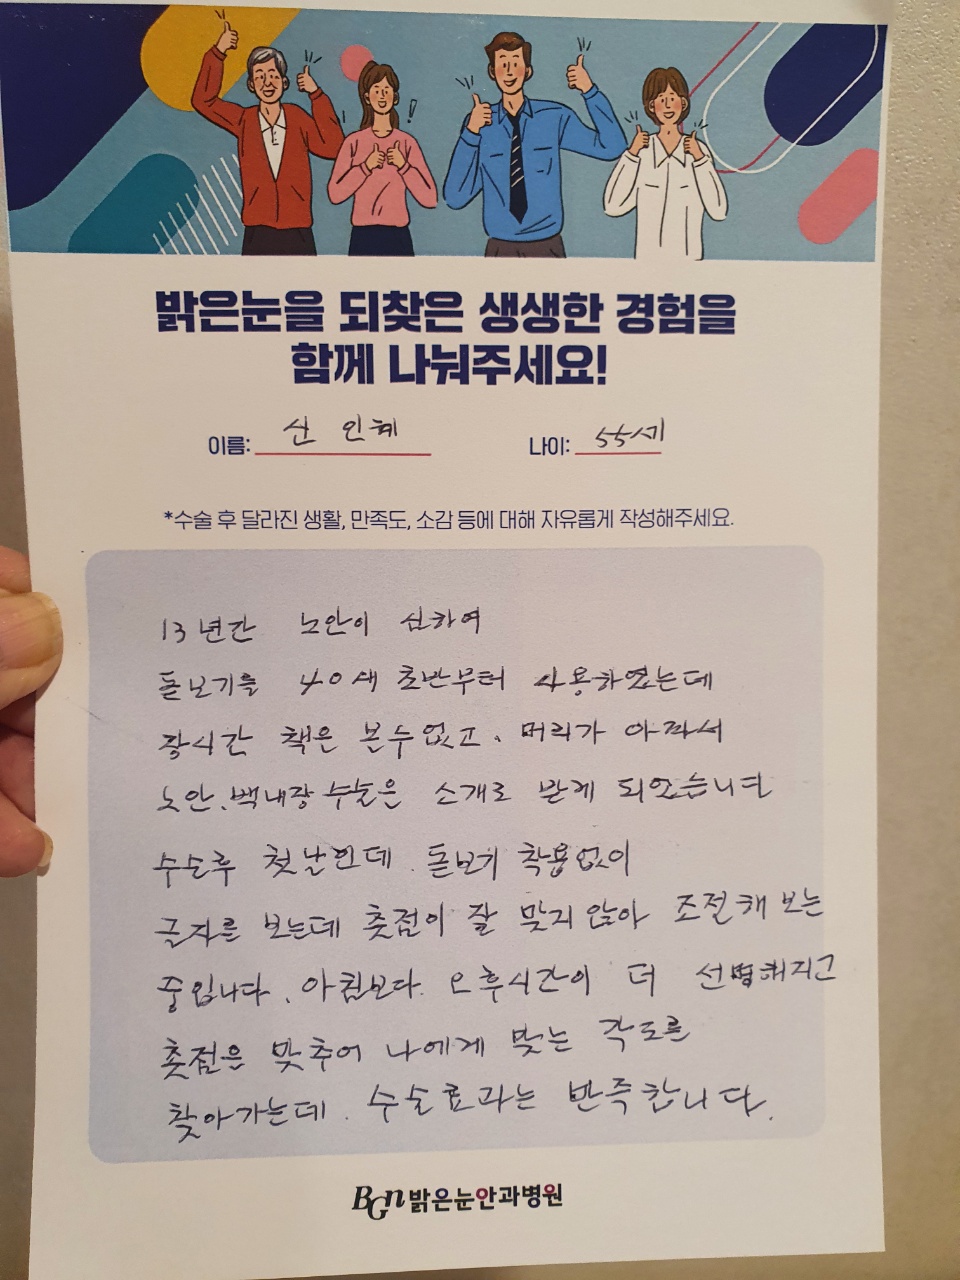 밝은눈을 되찾은 생생한 경험을
함께 나눠주세요!
이름: 신 인혜 나이: 55세
*수술 후 달라진 생활, 만족도, 소감 등에 대해 자유롭게 작성해주세요.
13년간 노안이 심하여
돋보기를 40세 초반부터 사용하였는데
장시간 책은 볼수없고. 머리가 아파서
노안.백내장 수술을 소개로 받게 되었습니다
수술후 첫날인데. 돋보기 착용없이
글자를 보는데 촛점이 잘 맞지 않아 조절해 보는
중입니다. 아침보다. 오후시간이 더 선명해지고
촛점을 맞추어 나에게 맞는 각도를
찾아가는데. 수술효과는 만족합니다.
BGN 밝은눈안과병원